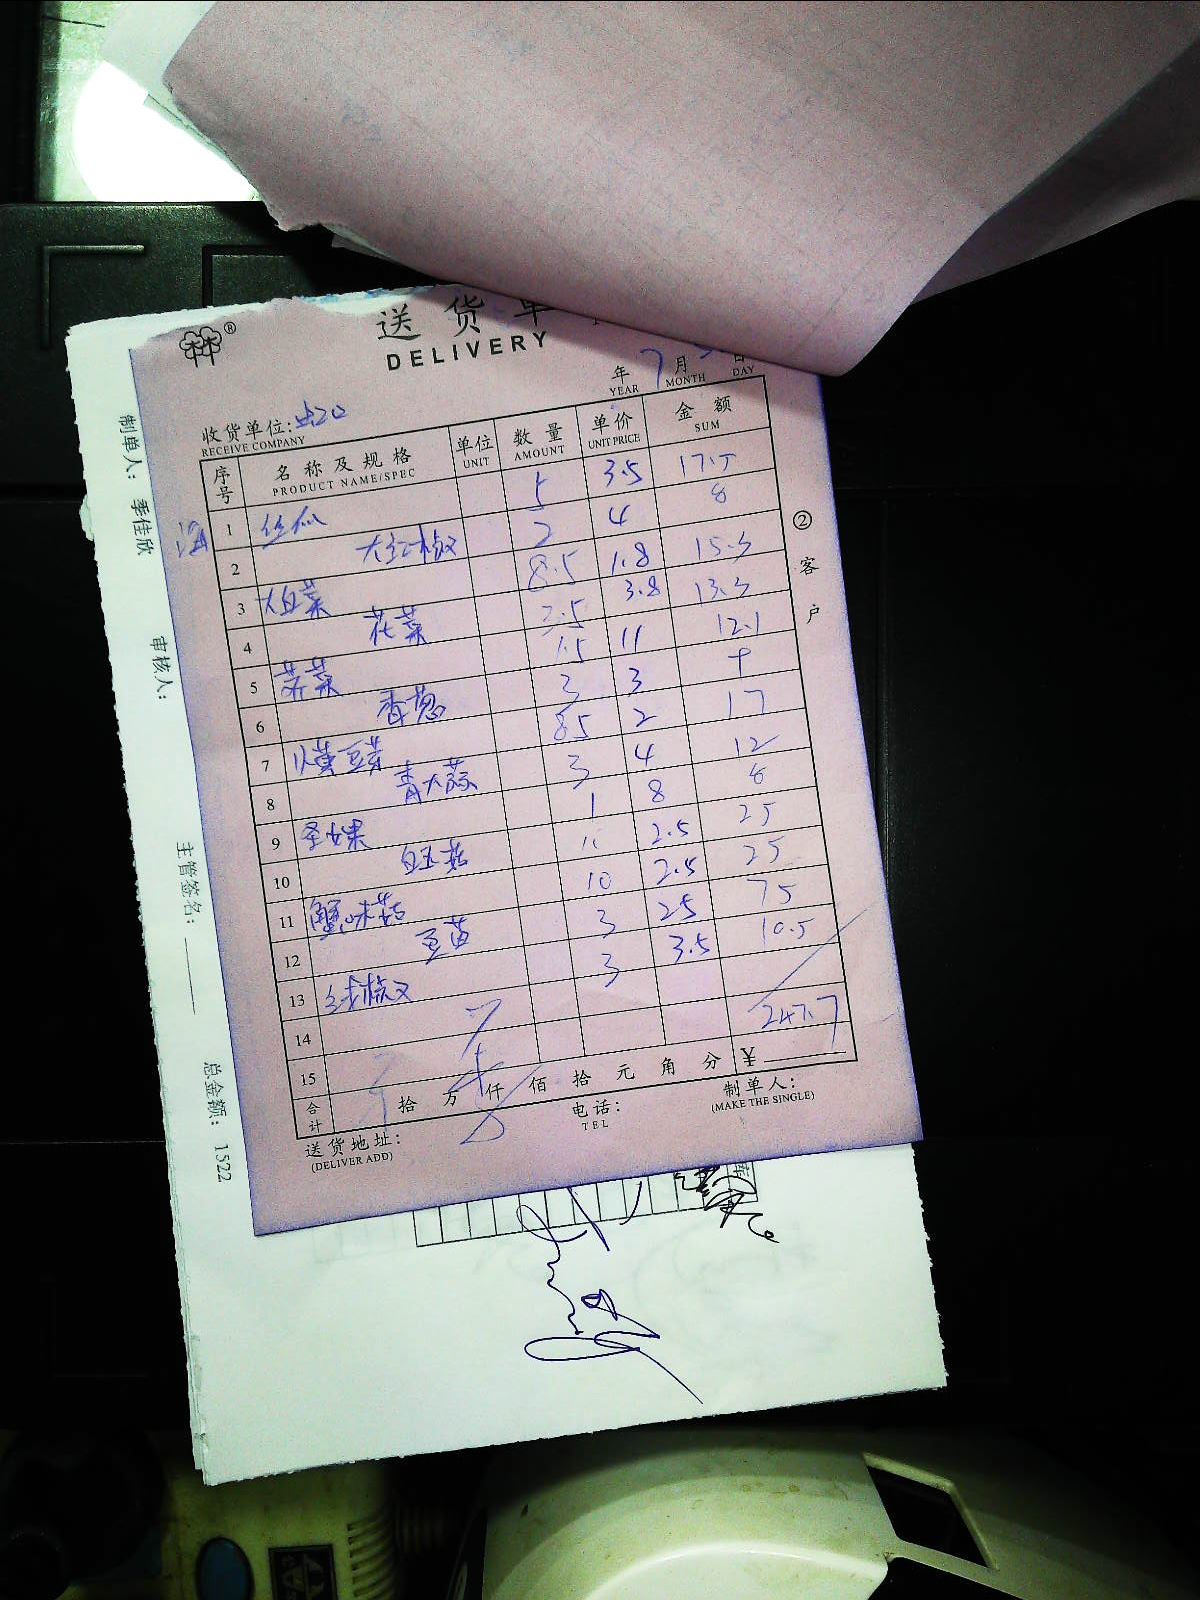 送货单
DELIVERY
年 7 月 日
YEAR MONTH DAY
收货单位:
RECEIVE COMPANY
序号 名称及规格 单位 数量 单价 金额
PRODUCT NAME/SPEC UNIT AMOUNT UNIT PRICE SUM
1 丝瓜 5 3.5 17.5
2 大红椒 2 4 8
3 大白菜 8.5 1.8 15.3
4 花菜 3.5 3.8 13.3
5 荠菜 1.5 11 12.1
6 香葱 3 3
7 小黄豆芽 8.5 2 17
8 青大蒜 3 4 12
9 圣女果 1 8 8
10 白玉菇 10 2.5 25
11 蟹味菇 10 2.5 25
12 豆苗 3 25 75
13 线椒 3 3.5 10.5
14
15
247.7
合计 拾 万 仟 佰 拾 元 角 分 ¥
送货地址: 电话: 制单人:
(DELIVER ADD) TEL (MAKE THE SINGLE)
② 客户
制单人: 季佳欣 审核人: 主管签名: 总金额: 1522